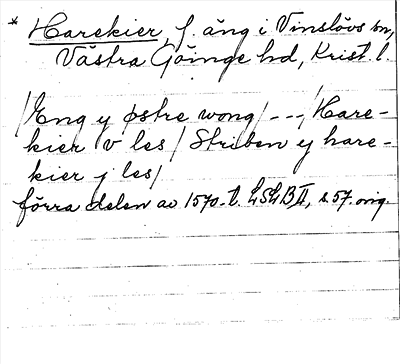 * Harekier, f. äng i Vinslövs sn,
Västra Göinge hd, Krist. l.
/Eng y østre wong/ --- /Hare-
kier v les/ Striben y hare-
kier j les/
förra delen av 1570-t. LSLB II, s. 57. orig.